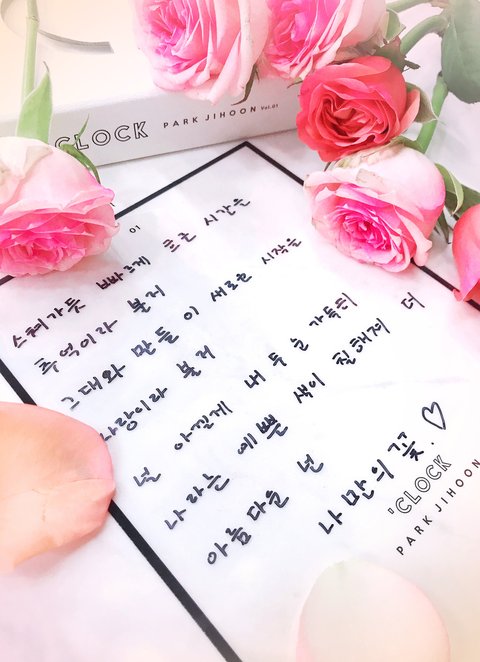 CLOCK PARK JIHOON Vol.01
01
스쳐가듯 빠르게 흐른 시간은
추억이라 불게
그대와 만들 이 새로운 시작을
사랑이라 불게
널 아낄게 내 두 눈 가득히
나라는 예쁜 색이 진해져 더
아름다운 넌
나만의 꽃.♡
'CLOCK
PARK JIHOON